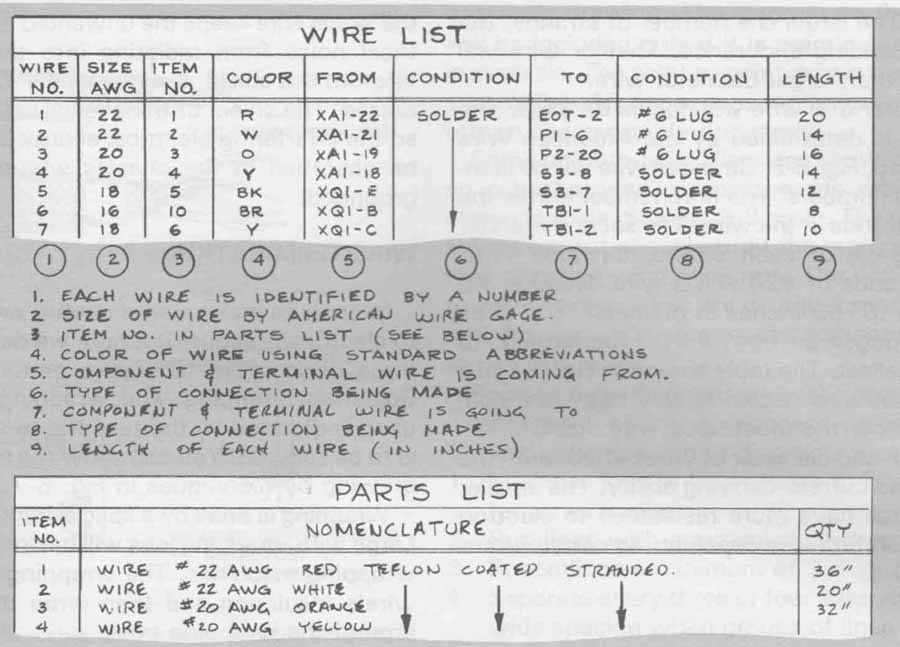 WIRE LIST
WIRE NO. SIZE AWG ITEM NO. COLOR FROM CONDITION TO CONDITION LENGTH
1 22 1 R XA1-22 SOLDER EOT-2 #6 LUG 20
2 22 2 W XA1-21 P1-6 #6 LUG 14
3 20 3 O XA1-19 P2-20 #6 LUG 16
4 20 4 Y XA1-18 S3-8 SOLDER 14
5 18 5 BK XQ1-E S3-7 SOLDER 12
6 16 10 BR XQ1-B TB1-1 SOLDER 10
7 18 6 Y XQ1-C TB1-2 SOLDER 10
1 2 3 4 5 6 7 8 9
1. EACH WIRE IS IDENTIFIED BY A NUMBER
2. SIZE OF WIRE BY AMERICAN WIRE GAGE.
3. ITEM NO. IN PARTS LIST (SEE BELOW)
4. COLOR OF WIRE USING STANDARD ABBREVIATIONS
5. COMPONENT & TERMINAL WIRE IS COMING FROM.
6. TYPE OF CONNECTION BEING MADE
7. COMPONENT & TERMINAL WIRE IS GOING TO
8. TYPE OF CONNECTION BEING MADE
9. LENGTH OF EACH WIRE (IN INCHES)
PARTS LIST
ITEM NO. NOMENCLATURE QTY
1 WIRE #22 AWG RED TEFLON COATED STRANDED. 36"
2 WIRE #22 AWG WHITE 20"
3 WIRE #20 AWG ORANGE 32"
4 WIRE #20 AWG YELLOW